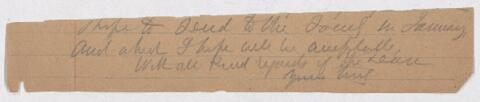 I hope to send to the Society in January
and which I hope will be acceptable.
With all kind regards of the
Yours truly